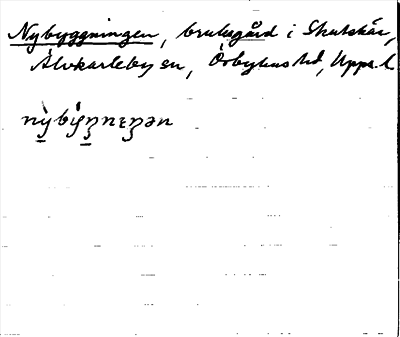 Nybyggningen, bruksgård i Skutskär,
Älvkarleby sn, Örbyhus hd, Upps. l.